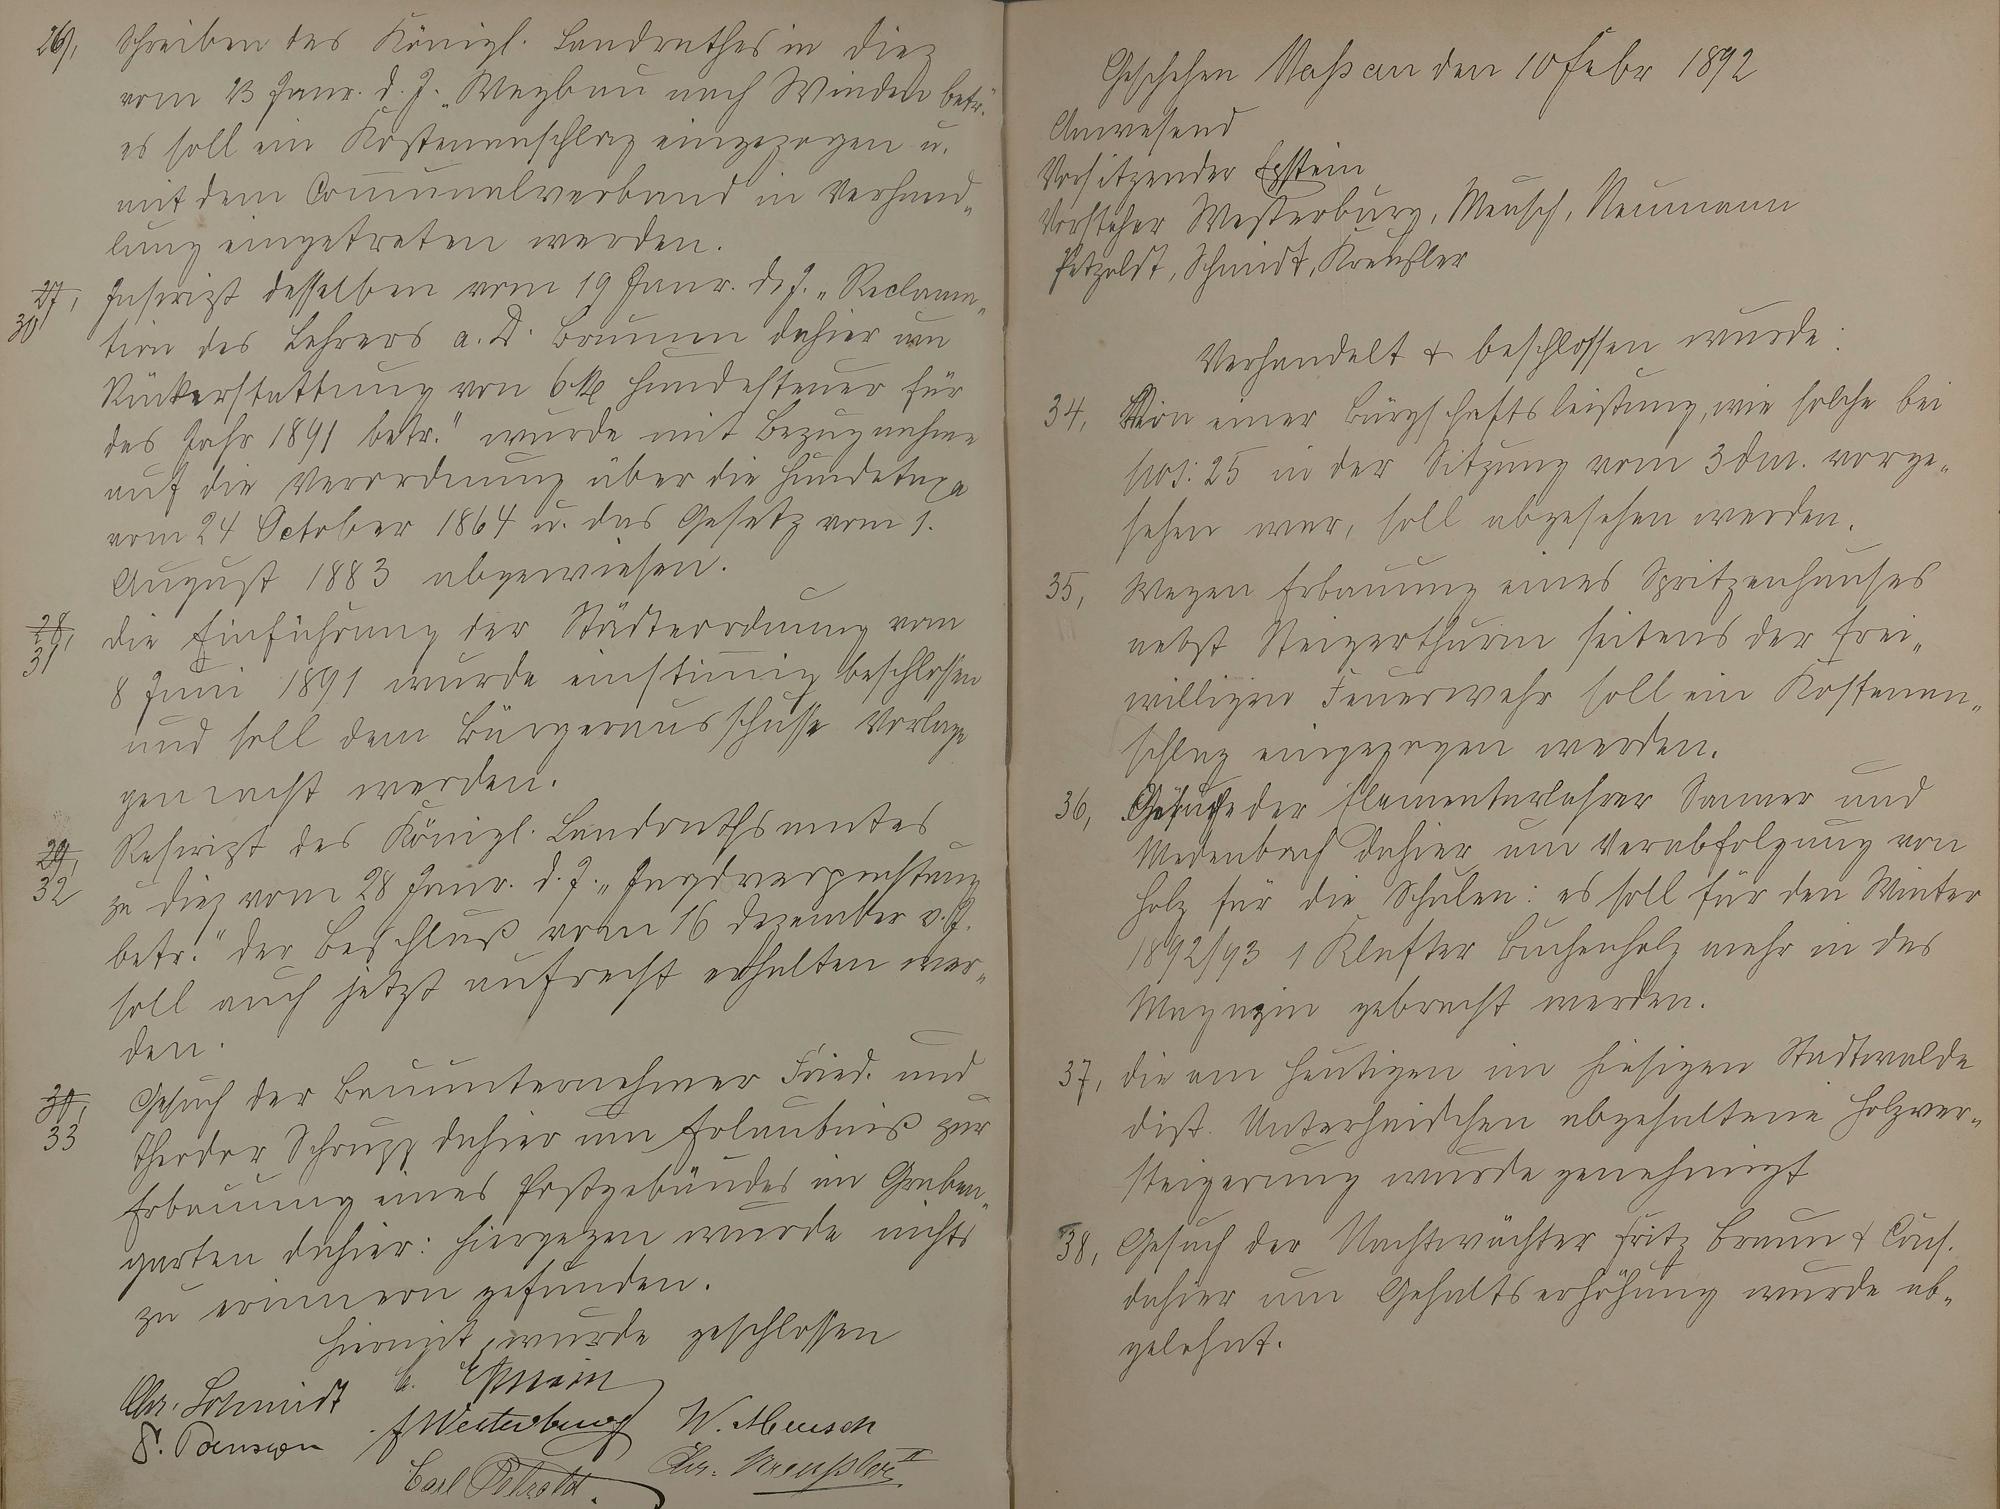 26, Schreiben des Königl. Landrathes in Diez
vom 23 Janr. d. J. „Wegbau nach Winden betr."
es soll ein Kostenanschlag eingezogen u.
mit dem Communalverband in Verhand„
lung eingetreten werden.
27, 30 Rescript desselben vom 19 Janr. d. J. „Reclama„
tion des Lehrers a. D. dahier um
Rückerstattung von 6 M Hundesteuer für
das Jahr 1891 betr." wurde mit Bezugnahme
auf die Verordnung über die Hundetaxe
vom 24 October 1864 u. das Gesetz vom 1.
August 1883 abgewiesen.
28, 31 die Einführung der Städteordnung vom
8 Juni 1891 wurde einstimig beschlossen
und soll dem Bürgerausschusse Vorlage
gemacht werden.
29, 32 Rescript des Königl. Landrathsamtes
zu Diez vom 28 Janr. d. J. „Jagdverpachtung
betr." der Beschluß vom 16 Dezember v. J.
soll auch jetzt aufrecht erhalten wer„
den.
33 Gesuch der Bauunternehmer Fried. und
Theodor Schrupp dahier um Erlaubniß zur
Erbauung eines Postgebäudes im Graben„
garten dahier: hiergegen wurde nichts
zu erinnern gefunden.
Hiermit wurde geschlossen
Chr. Schmidt Epstein
Westerburg W. Meusch
Carl Petzoldt. Chr. Kreußler II
Geschehen Naßau den 10 Febr 1892
Anwesend
Vorsitzender Epstein
Vorsteher Westerburg, Meusch, Neumann
Petzoldt, Schmidt, Kreußler
Verhandelt & beschlossen wurde:
34, Von einer Bürgschaftsleistung, wie solche bei
pos: 25 in der Sitzung vom 3 dm. vorge„
sehen war, soll abgesehen werden.
35, Wegen Erbauung eines Spritzenhauses
nebst Steigerthurm seitens der frei„
willigen Feuerwehr soll ein Kostenan„
schlag eingezogen werden.
36, Gesuche der Elementarlehrer Sanner und
Medenbach dahier um Verabfolgung von
Holz für die Schulen: es soll für den Winter
1892/93 1 Klafter Buchenholz mehr in das
Magazin gebracht werden.
37, die am heutigen im hiesigen Stadtwalde
dist. Unterhaidchen abgehaltene Holzver„
steigerung wurde genehmigt
38, Gesuch der Nachtwächter Fritz Braun & Cons.
dahier um Gehaltserhöhung wurde ab„
gelehnt.